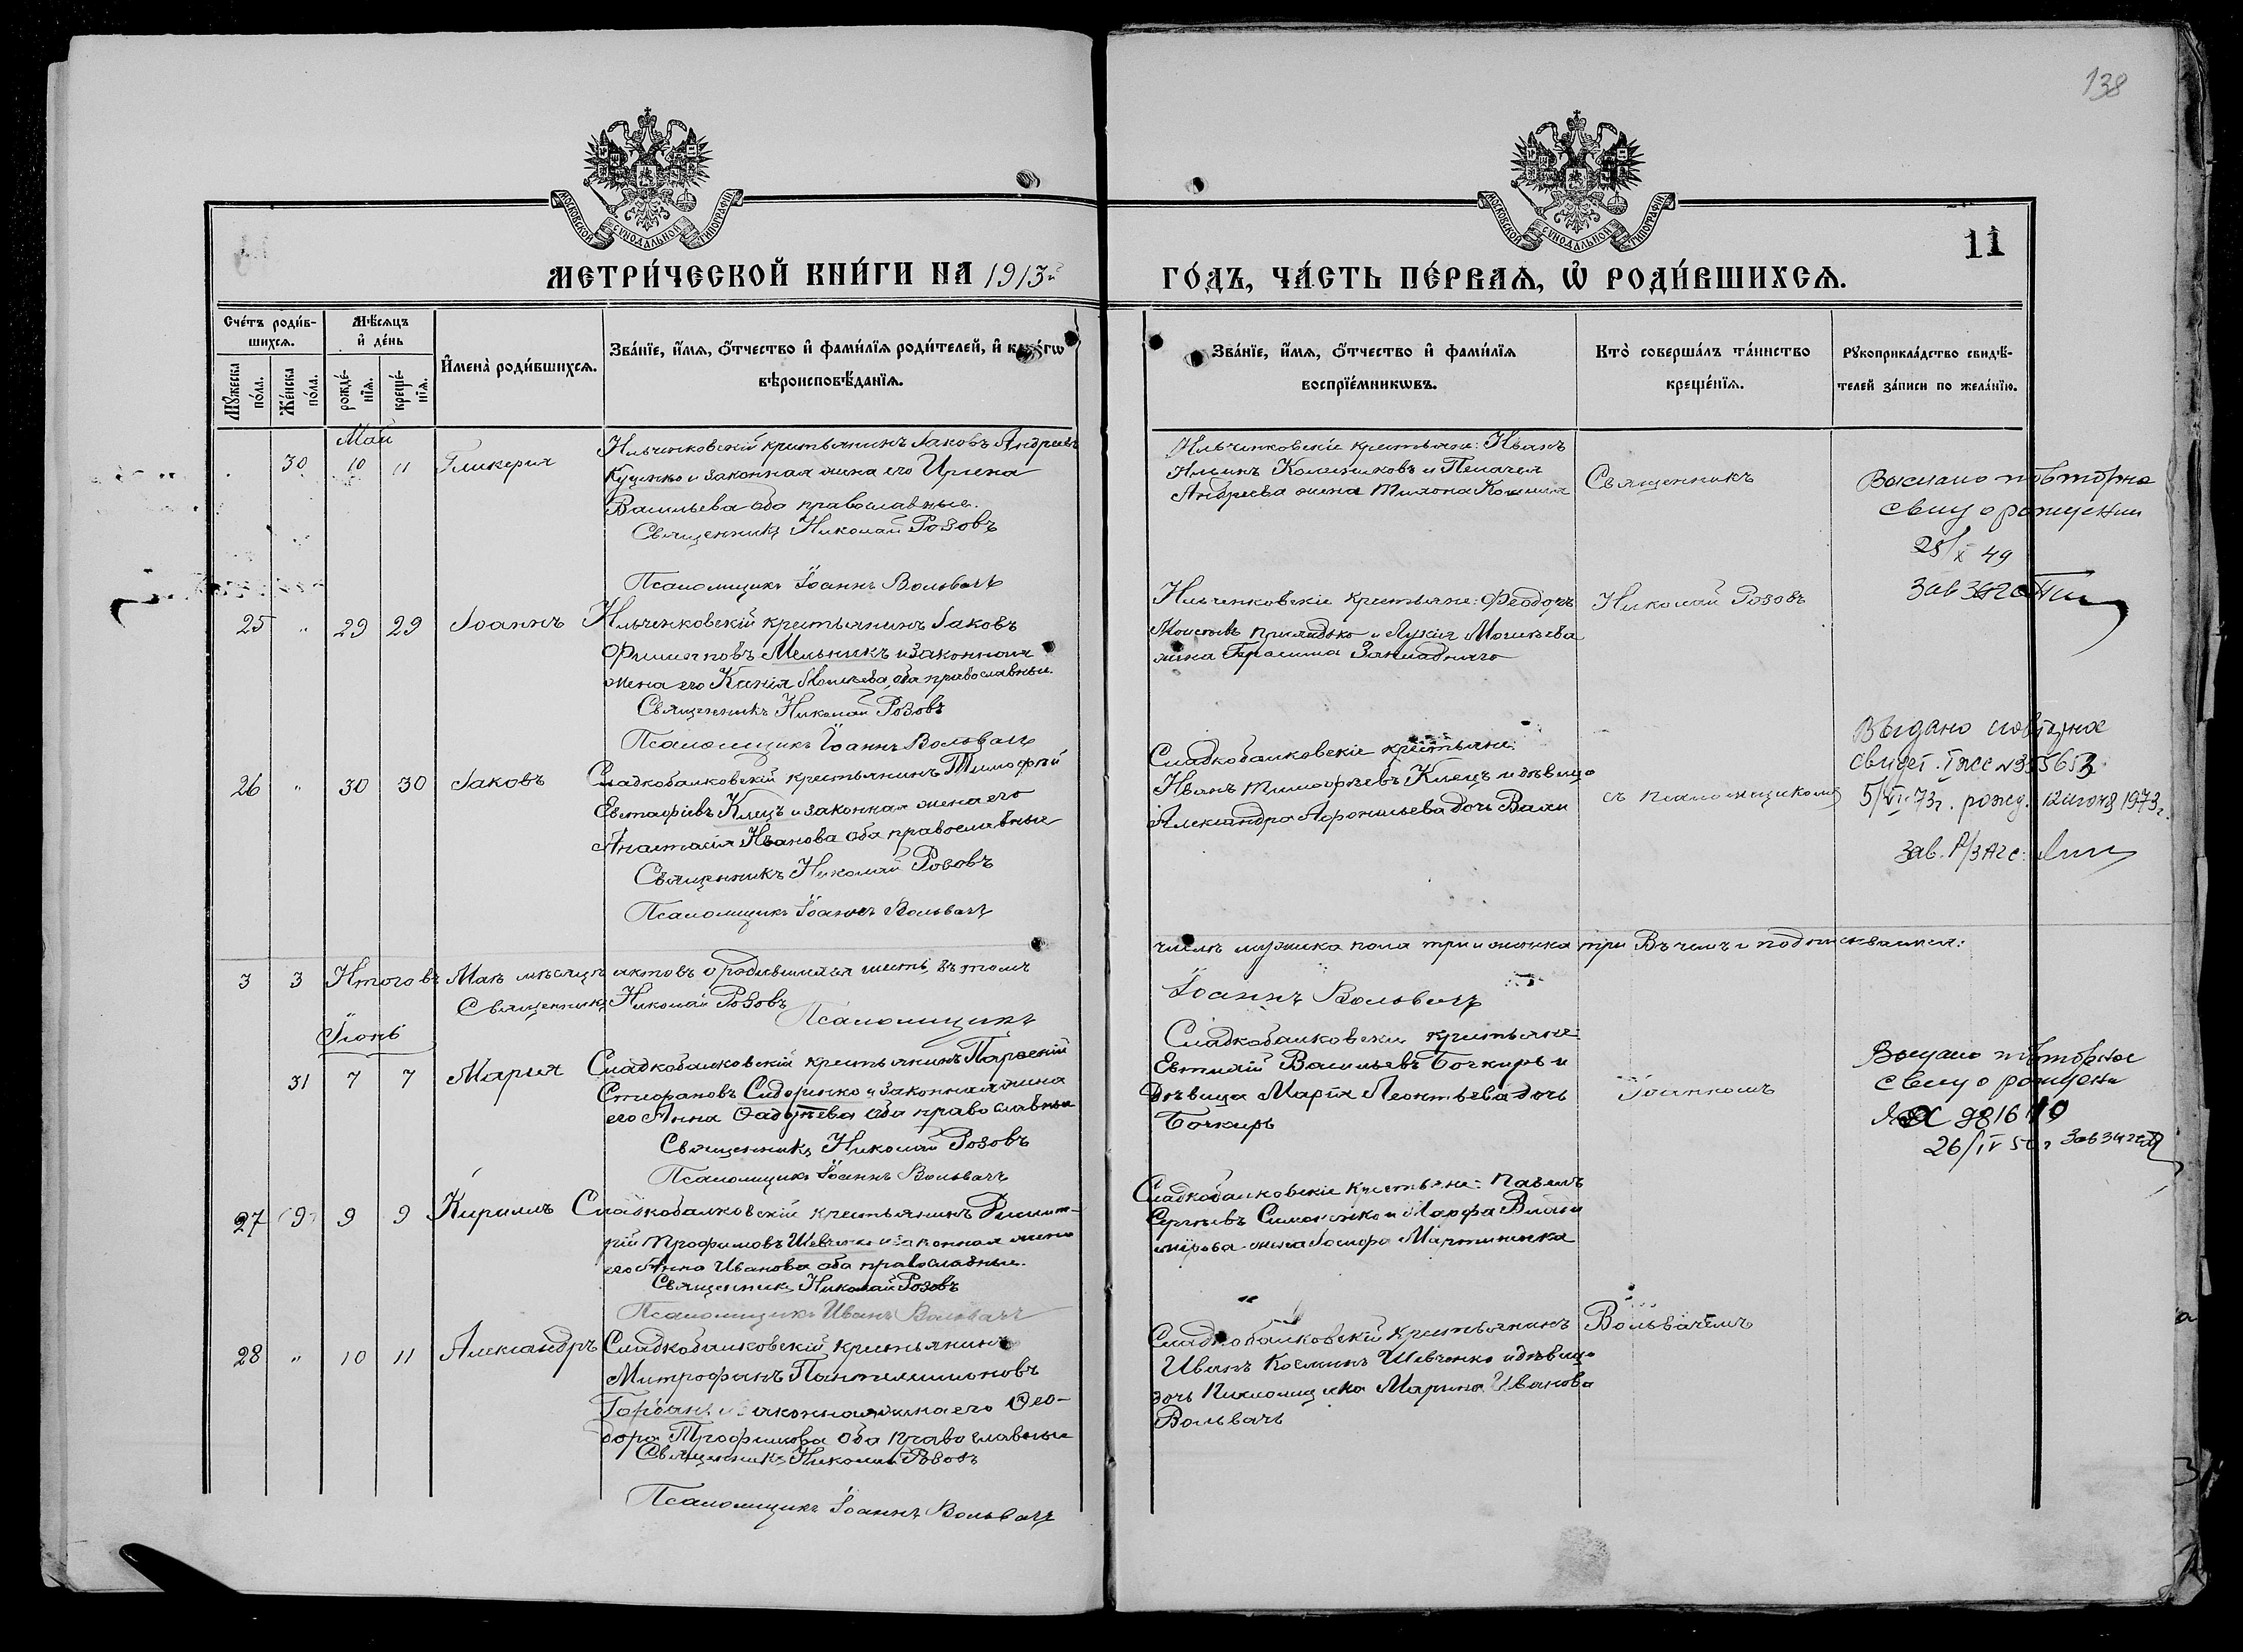 138
МОСКОВСКОЙ СѴНОДАЛЬНОЙ ТИПОГРАФІИ
МОСКОВСКОЙ СѴНОДАЛЬНОЙ ТИПОГРАФІИ
11
МЕТРИ́ЧЕСКОЙ КНИ́ГИ НА 1913й
ГО́ДЪ, ЧА́СТЬ ПЕ́РВАѦ, Ѡ҆ РОДИ́ВШИХСѦ.
Сче́тъ роди́в-
шихсѧ.
Мꙋ́жеска по́ла.
Же́нска по́ла.
Мѣ́сѧцъ
и҆ де́нь
рожде́-
нїѧ.
креще́-
нїѧ.
И҆мена̀ роди́вшихсѧ.
Зва́нїе, и҆́мѧ, ѻ҆́тчество и҆ фами́лїѧ роди́телей, и҆ како́гѡ
вѣроисповѣ́данїѧ.
Зва́нїе, и҆́мѧ, ѻ҆́тчество и҆ фами́лїѧ
воспрїе́мникѡвъ.
Кто̀ соверша́лъ та́инство
креще́нїѧ.
Рꙋкоприкла́дство свидѣ́-
телей за́писи по жела́нїю.
Май
30 10 11 Гликерия
Ильченковскій крестьянинъ Іаковъ Андреевъ
Куценко и законная жена его Ирина
Васильева оба православные.
Священникъ Николай Розовъ
Псаломщикъ Іоаннъ Вольвачъ
Ильченковскіе крестьяне: Иванъ
и Пелагея
Андреева жена
Священникъ
Выслано повторно
свид о рождении
28/X 49
Зав Загс
25 " 29 29 Іоаннъ
Ильченковскій крестьянинъ Іаковъ
Филипповъ Мельникъ и законная
жена его Ксенія Моисеева, оба православные.
Священникъ Николай Розовъ
Псаломщикъ Іоаннъ Вольвачъ
Ильченковскіе крестьяне: Феодоръ
Моисеевъ Прилидько и Лукія Моисеева
жена Герасима
Николай Розовъ
26 " 30 30 Іаковъ
Сладкобалковскій крестьянинъ Тимофей
Евстафіевъ Клецъ и законная жена его
Анастасія Иванова оба православные
Священникъ Николай Розовъ
Псаломщикъ Іоаннъ Вольвачъ
Сладкобалковскіе крестьяне
Иванъ Тимофеевъ Клецъ и девица
Александра дочь
съ псаломщикомъ
Выдано повторное
свидет.
5/VI-73г. рожд. 12 июня 1973г.
зав. Р/загс:
3 3 Итого въ Маѣ мѣсяцѣ актовъ о родившихся шесть, въ томъ
числѣ мужска пола три и женска три Въ чемъ и подписываемся:
Священникъ Николай Розовъ
Псаломщикъ
Іоаннъ Вольвачъ
Іюнь
31 7 7 Марія
Сладкобалковскій крестьянинъ
Стефановъ Сидоренко и законная жена
его Анна Фадѣева оба православные
Священникъ Николай Розовъ
Псаломщикъ Іоаннъ Вольвачъ
Сладкобалковскіе крестьяне
Евтихій Васильевъ Бочкирь и
Дѣвица Марія Леонтьева дочь
Бочкирь
Іоанномъ
Выдано повторное
свид о рождени
26/IV 50г Зав загса
27 9 9 Кириллъ
Сладкобалковскій крестьянинъ Димит-
рій Трофимовъ Шевченко и законная жена
его Анна Иванова оба православные.
Священникъ Николай Розовъ
Псаломщикъ Иванъ Вольвачъ
Сладкобалковскіе крестьяне: Павелъ
Сергѣевъ Симоненко и Марфа Влади
мірова жена Іосифа Мартиненка
28 " 10 11 Александръ
Сладкобалковскій крестьянинъ
Митрофанъ Пантелимоновъ
Горбань и законная жена его Фео-
дора Трофимова оба православные
Священникъ Николай Розовъ
Псаломщикъ Іоаннъ Вольвачъ
Сладкобалковскій крестьянинъ
Иванъ Косминъ Шевченко и дѣвица
дочь псаломщика Марина Иванова
Вольвачъ
Вольвачемъ